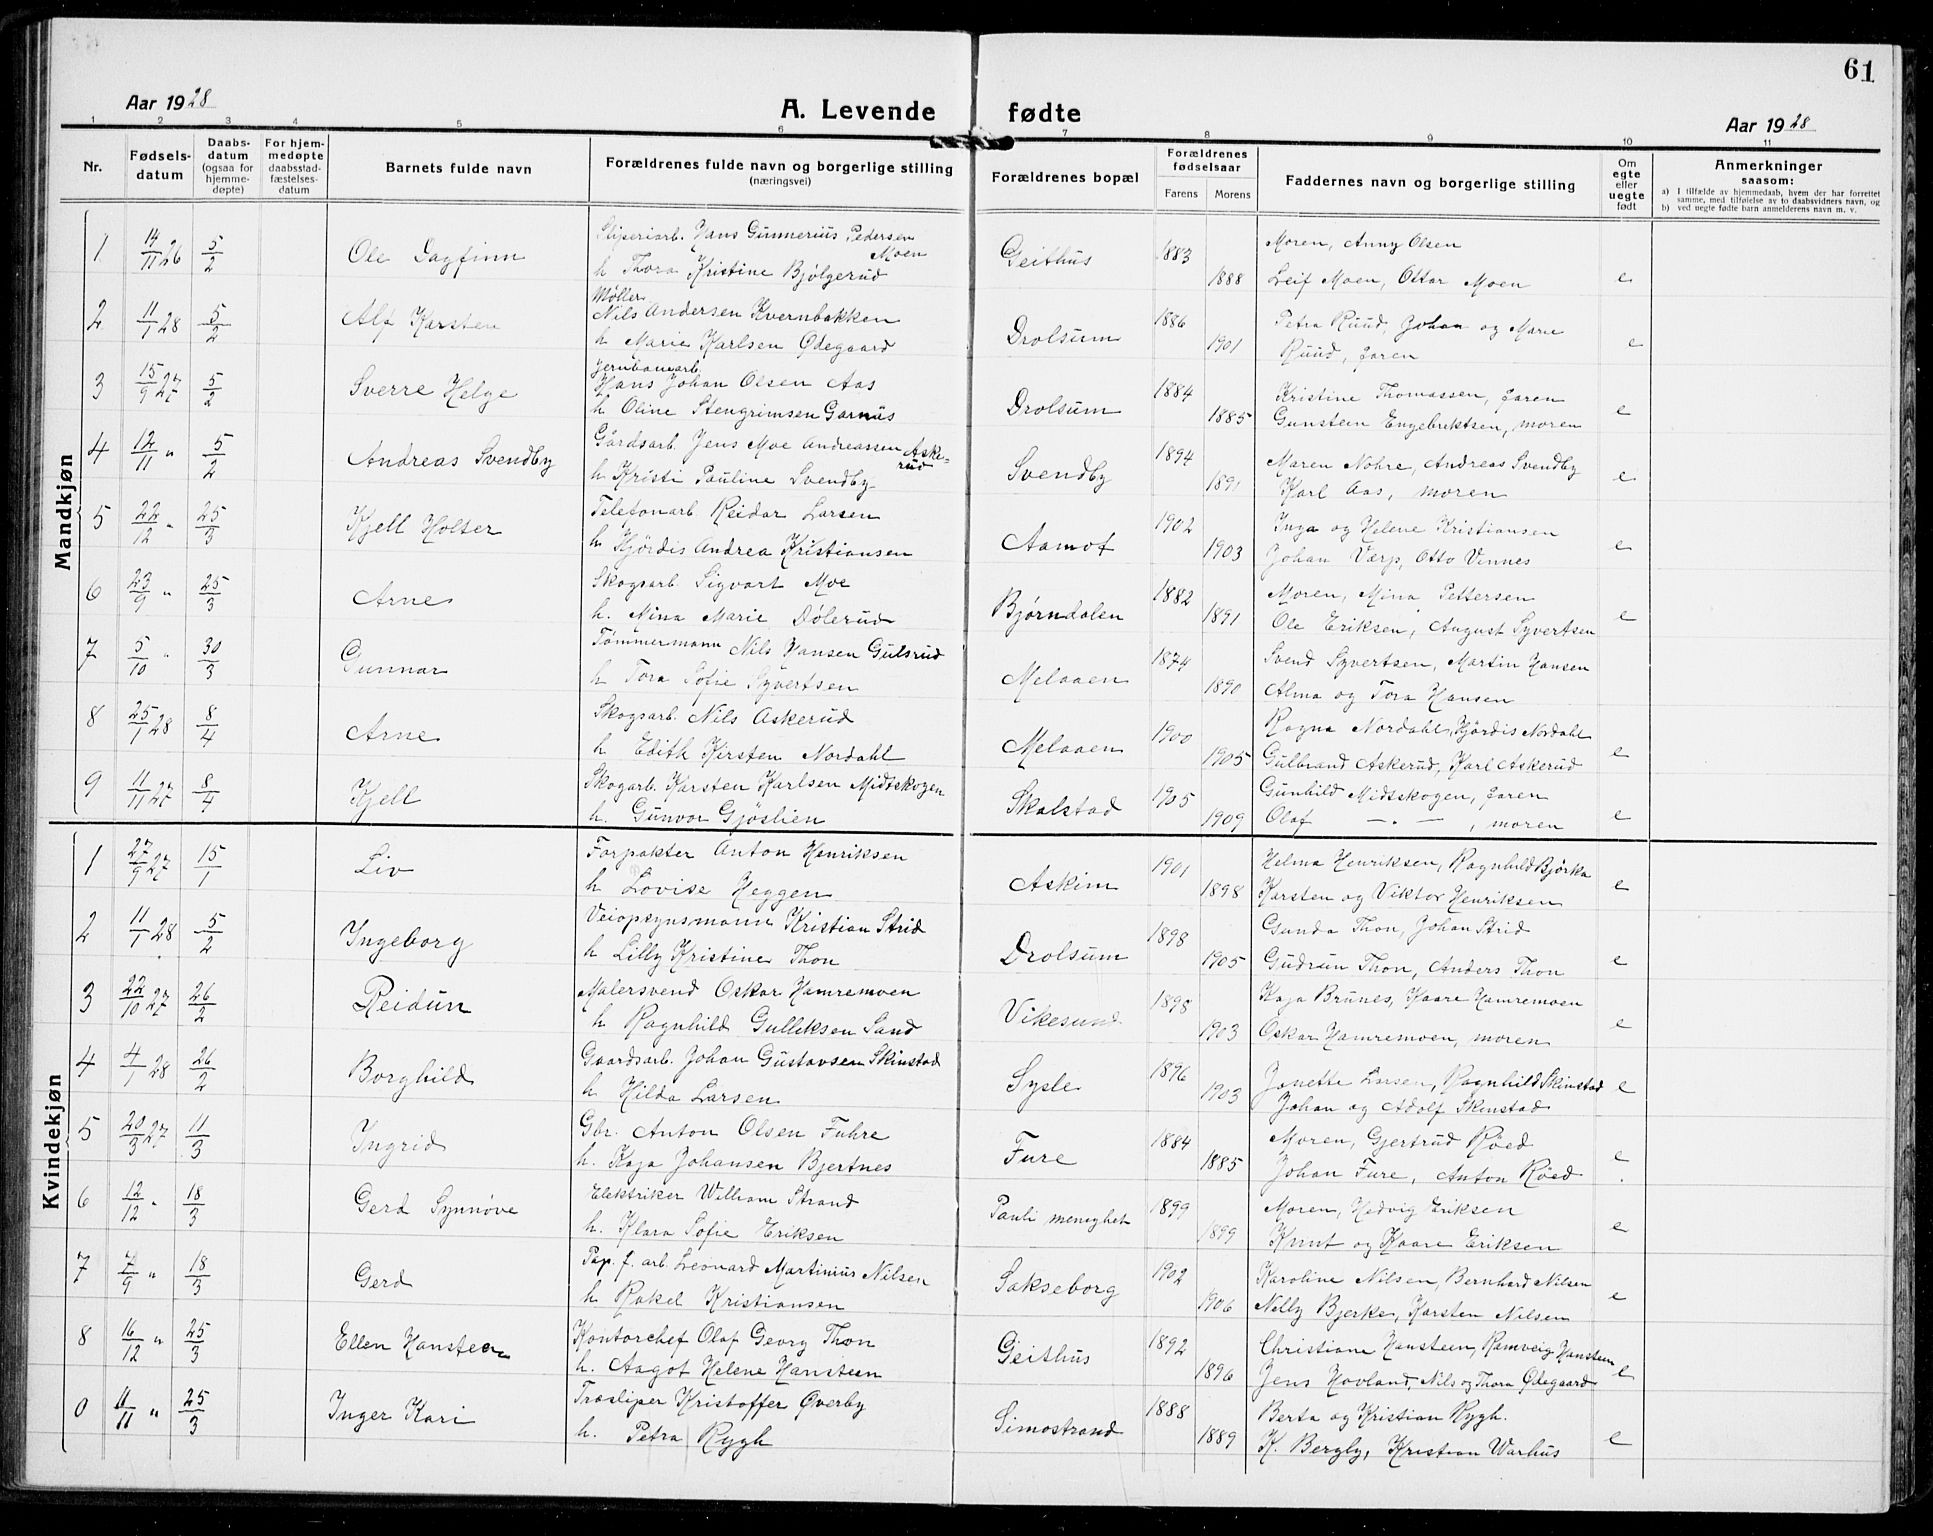 61
Aar 1928
A. Levende fødte
Aar 1928
1 2 3 4 5 6 7 8 9 10 11
Nr. Fødselsdatum Daabsdatum (ogsaa for hjemmedøpte) For hjemmedøpte daabsstadfæstelsesdatum Barnets fulde navn Forældrenes fulde navn og borgerlige stilling (næringsvei) Forældrenes bopæl Forældrenes fødselsaar Farens Morens Faddernes navn og borgerlige stilling Om egte eller uegte født Anmerkninger saasom:
a) I tilfælde av hjemmedaab, hvem der har forrettet samme, med tilføielse av to daabsvidners navn, og
b) ved uegte fødte barn anmelderens navn m. v.
Mandkjøn
1 14/11 26 5/2 Ole Dagfinn Sliperiarb. Hans Gunnerius Pedersen Moen Geithus 1883 Moren, Anny Olsen
h Thora Kristine Bjølgerud 1888 Leif Moen, Ottar Moen e
2 11/1 28 5/2 Alf Karsten Møller Nils Andersen Kvernbakken Drolsum 1886 Petra Ruud, Johan og Marie
h Marie Karlsen Ødegaard 1901 Ruud, faren e
3 15/9 27 5/2 Sverre Helge Jernbanearb. Hans Johan Olsen Aas Drolsum 1884 Kristine Thomassen, faren
h Oline Stengrimsen Garnås 1885 Gunsteen Engebrektsen, moren e
4 12/11 " 5/2 Andreas Svendby Gårdsarb. Jens Moe Andreassen Askerud Svendby 1894 Maren Nohre, Andreas Svendby
h Kristi Pauline Svendby 1891 Karl Aas, moren e
5 22/12 " 25/3 Kjell Holter Telefonarb Reidar Larsen Aamot 1902 Inga og Helene Kristiansen
h Hjördis Andrea Kristiansen 1903 Johan Værp, Otto Vinnes e
6 23/9 " 25/3 Arne Skogsarb. Sigvart Moe Bjørndalen 1882 Moren, Mina Pettersen
h. Mina Marie Dölerud 1891 Ole Eriksen, August Syvertsen e
7 5/10 " 30/3 Gunnar Tømmermann Nils Hansen Gulsrud Melaaen 1874 Svend Syvertsen, Martin Hansen
h Tora Sofie Syvertsen 1890 Alma og Tora Hansen
8 25/1 28 8/4 Arne Skogsarb. Nils Askerud Melaaen 1900 Ragna Nordahl, Hjördis Nordahl
h Edith Kirsten Nordahl 1905 Gulbrand Askerud, Karl Askerud e
9 11/11 27 8/4 Kjell Skogarb. Karsten Karlsen Midtskogen Skalstad 1905 Gunhild Midtskogen, faren
h. Gunvor Gjöslien 1909 Olaf — . — , moren e
Kvindekjøn
1 27/9 27 15/1 Liv Forpakter Anton Henriksen Askim 1901 Helma Henriksen, Ragnhild Björka
h Lovise Heggen 1898 Karsten og Viktor Henriksen e
2 11/1 28 5/2 Ingeborg Veiopsynsmann Kristian Strid Drolsum 1898 Gunda Thon, Johan Strid
h Lilly Kristine Thon 1905 Gudrun Thon, Anders Thon e
3 22/10 27 26/2 Reidun Malersvend Oskar Hamremoen Vikesund 1898 Kaja Brunes, Kaare Hamremoen
h Ragnhild Gulleksen Sand 1903 Oskar Hamremoen, moren e
4 4/1 28 26/2 Borghild Gaardsarb. Johan Gustavsen Skinstad Sysle 1896 Janette Larsen, Ragnhild Skinstad
h Hilda Larsen 1903 Johan og Adolf Skinstad e
5 20/3 27 11/3 Ingrid Gbr. Anton Olsen Fuhre Fure 1884 Moren, Gjertrud Røed
h. Kaja Johansen Bjertnes 1885 Johan Fure, Anton Røed e
6 12/12 " 18/3 Gerd Synnøve Elektriker William Strand Pauli menighet 1899 Moren, Hedvig Eriksen
h. Klara Sofie Eriksen 1899 Knut og Kaare Eriksen e
7 7/9 " 18/3 Gerd Pap. f. arb. Leonard Martinius Nilsen Sakseborg 1902 Karoline Nilsen, Bernhard Nilsen
h Rakel Kristiansen 1906 Nelly Bjerke, Karsten Nilsen e
8 16/12 " 25/3 Ellen Hansteen Kontorchef Olaf Georg Thon Geithus 1892 Christiane Hansteen, Ramveig Hansteen
h. Aagot Helene Hansteen 1896 Jens Hovland, Nils og Thora Ødegaard e
0 11/11 " 25/3 Inger Kari Træsliper Kristoffer Øverby Simostrand 1888 Berta og Kristian Rygh.
h. Petra Rygh 1889 K. Bergby, Kristian Warhus e